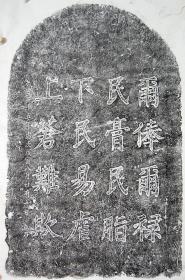 爾俸爾祿
民膏民脂
下民易虐
上蒼難欺